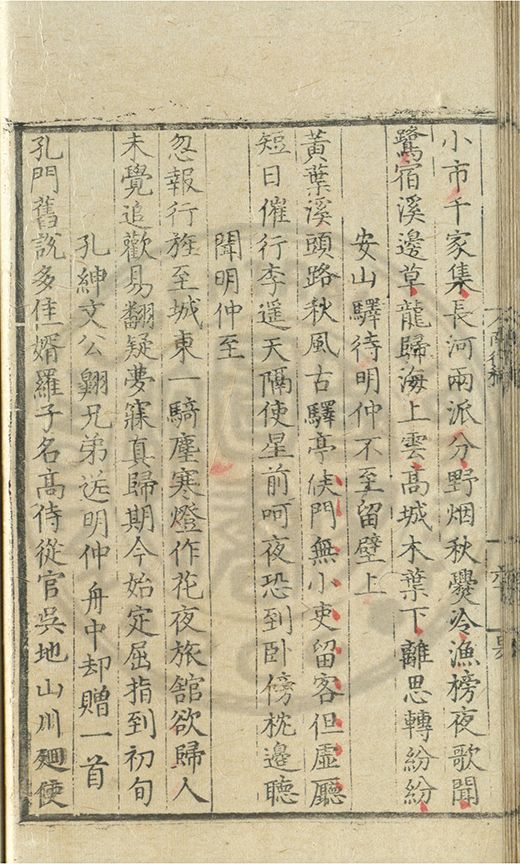 小市千家集長河兩派分野烟秋爨冷漁榜夜歌聞
鷺宿溪邊草龍歸海上雲高城木葉下離思轉紛紛
安山驛待明仲不至留壁上
黃葉溪頭路秋風古驛亭候門無小吏留客但虛廳
短日催行李遥天隔使星前呵夜恐到卧傍枕邊聽
聞明仲至
忽報行旌至城東一騎塵寒燈作花夜旅舘欲歸人
未覺追歡易翻疑夢寐真歸期今始定屈指到初旬
孔紳文公翱兄弟送明仲舟中却贈一首
孔門舊說多佳婿羅子名高侍從官吳地山川廻使